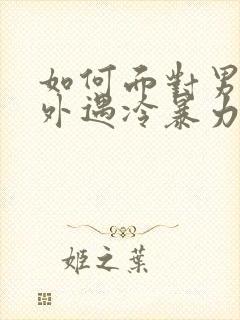 如何面對男
外遇冷暴力
姬之葉